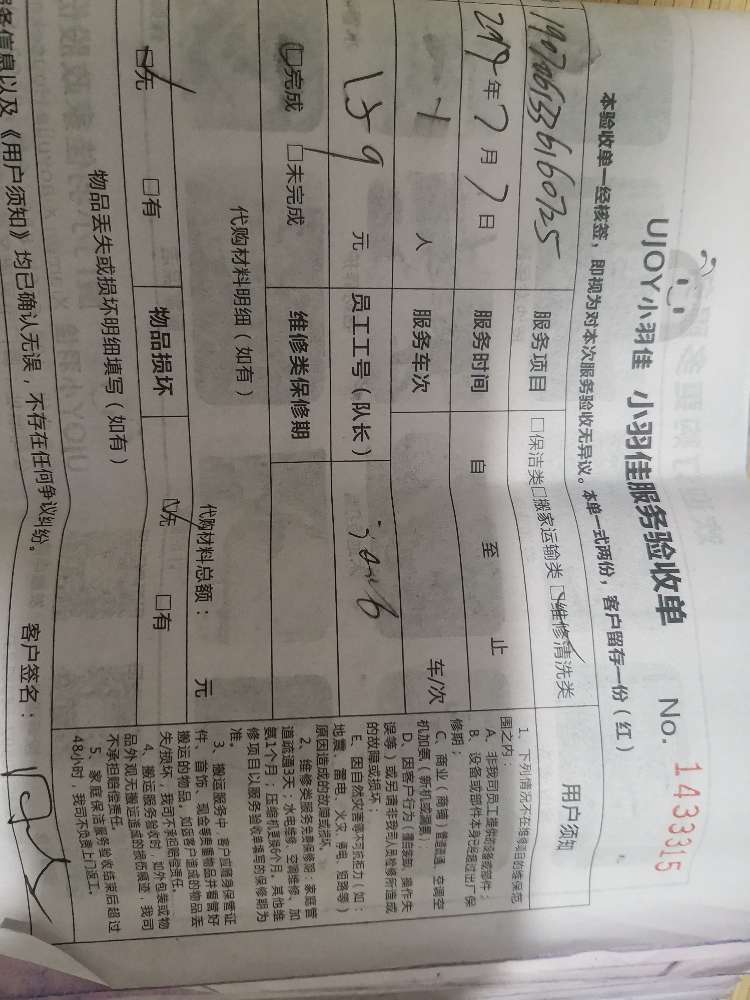 UJOY小羽佳 小羽佳服务验收单 No. 1433315
本验收单一经核签，即视为对本次服务验收无异议。本单一式两份，客户留存一份（红）
服务项目 □保洁类□搬家运输类 □维修清洗类
年7月7日 服务时间 自 至 止
1 人 服务车次 车/次
159 元 员工工号（队长）
□完成 □未完成 维修类保修期
代购材料明细（如有） 代购材料总额： 元
□无 □有 物品损坏 □无 □有
物品丢失或损坏明细填写（如有）
务信息以及《用户须知》均已确认无误，不存在任何争议纠纷。 客户签名：
用户须知
1、下列情况不在维修项目的维保范
围之内：
A、非我司员工提供的设备或部件；
B、设备或部件本身已超过出厂保
修期；
C、商业（商铺）管道疏通、空调空
机加氨（新机或漏氨）；
D、因客户行为（擅自装卸、操作失
误等）或另请非我司人员检修所造成
的故障或损坏；
E、因自然灾害等不可抗拒力（如：
地震、雷电、火灾、停电、短路等）
原因造成的故障或损坏。
2、维修类服务免费保修期：家庭管
道疏通3天；水电维修、空调维修、加
氨1个月；压缩机更换6个月。其他维
修项目以服务验收单填写的保修期为
准。
3、搬运服务中，客户应随身保管证
件、首饰、现金等贵重物品并看管好
搬运的物品，如因客户造成的物品丢
失/损坏，我司不承担赔偿责任。
4、搬运服务验收时，如外包装或物
品外观无搬运造成的损伤痕迹，我司
不承担赔偿责任。
5、家庭保洁服务验收结束后超过
48小时，我司不负责上门返工。